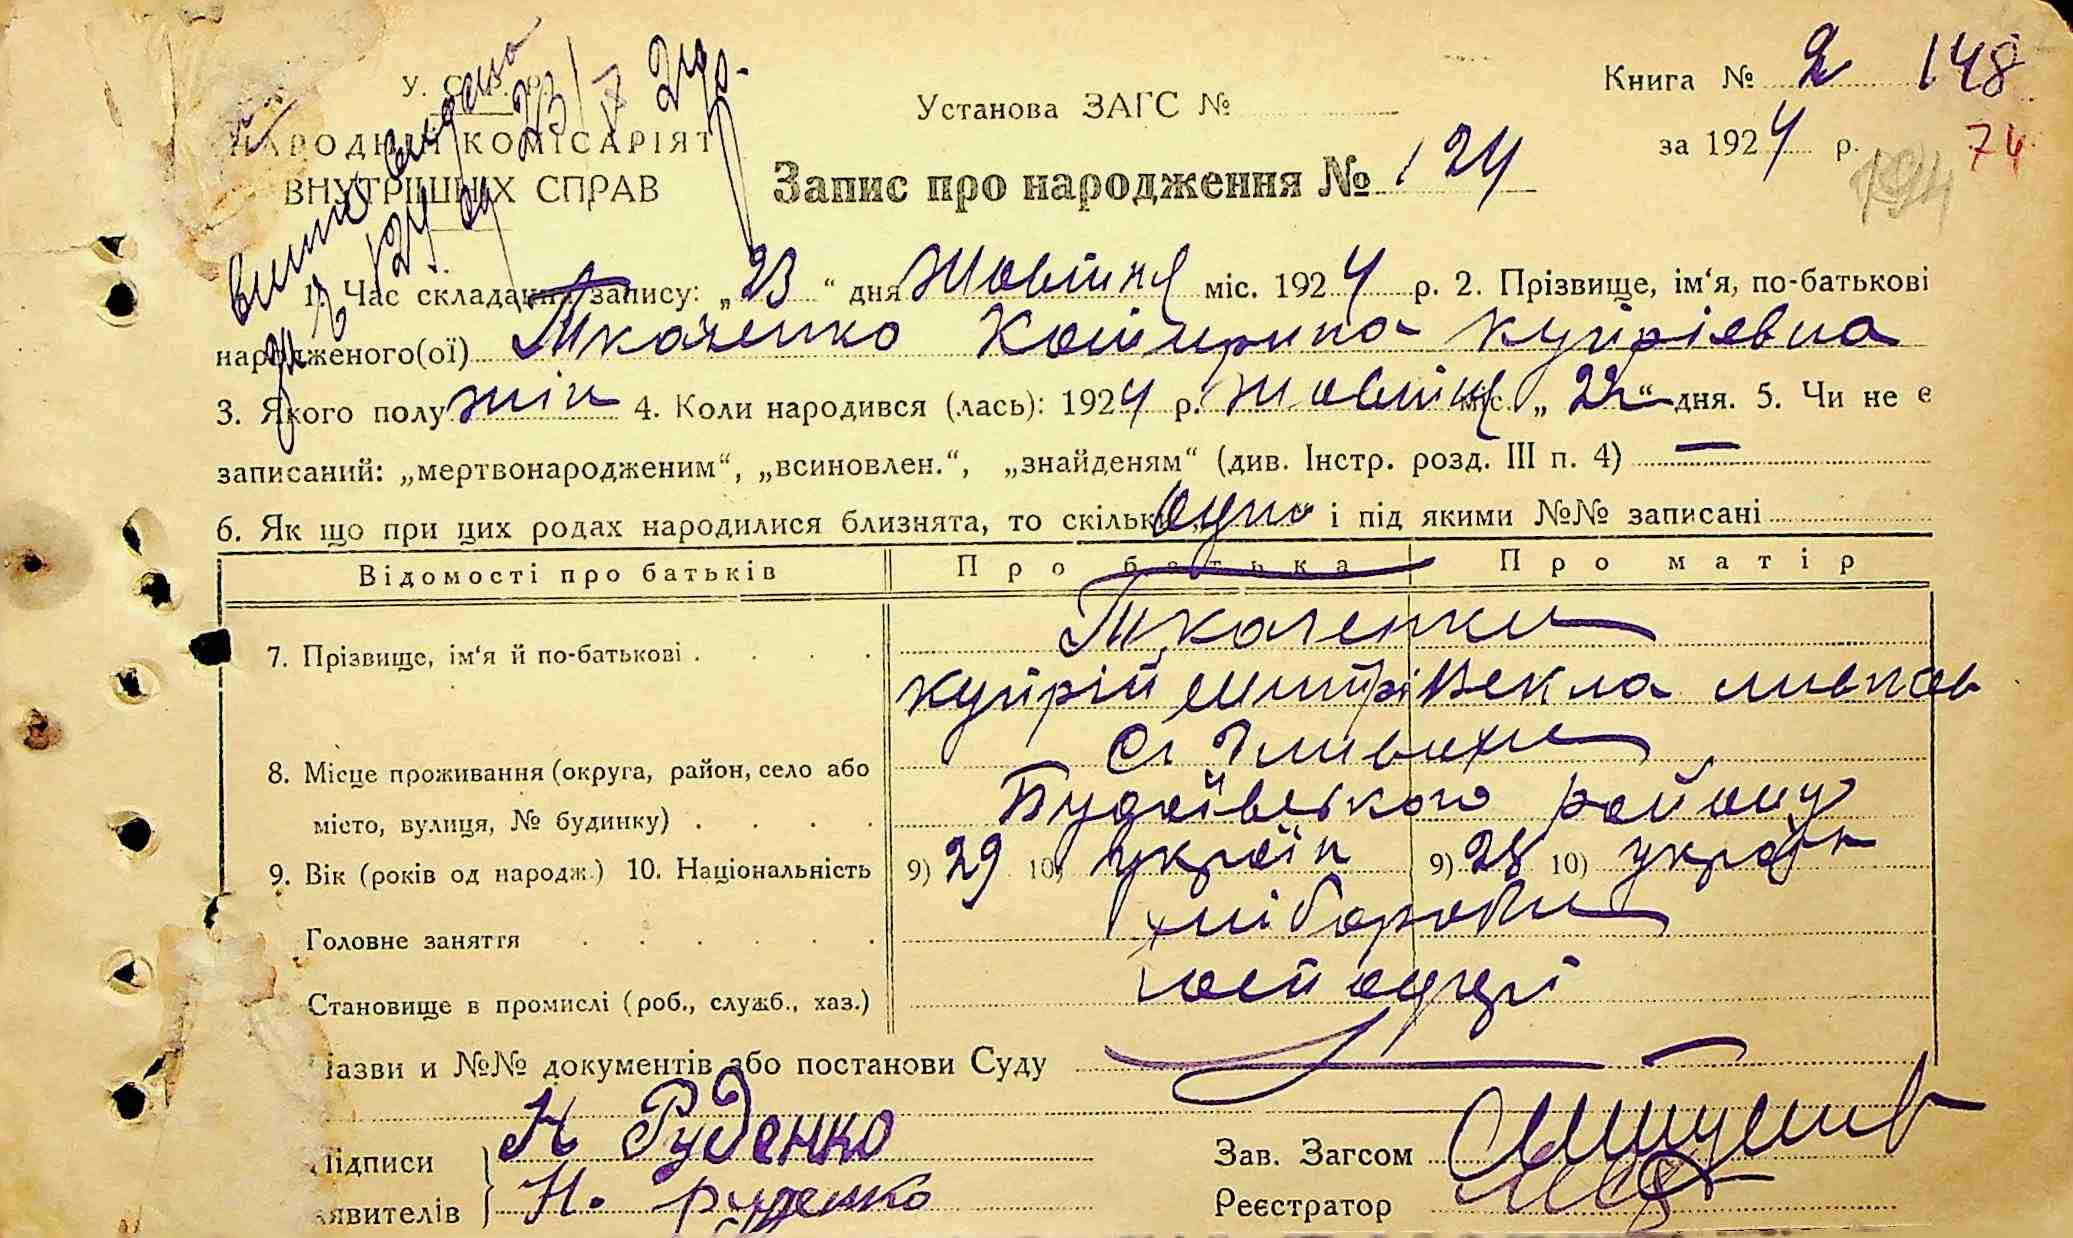 Книга № 2 148
У. С. Р. Р.
Установа ЗАГС №
за 1924 р. 74
194
НАРОДНИЙ КОМІСАРІЯТ
ВНУТРІШНІХ СПРАВ
Запис про народження № 124
1. Час складання запису: „23“ дня Жовтня міс. 1924 р. 2. Прізвище, ім‘я, по-батькові
народженого(ої) Ткаченко Катирина Купріевна
3. Якого полу жін 4. Коли народився (лась): 1924 р. Жовтня міс. „22“ дня. 5. Чи не є
записаний: „мертвонародженим“, „всиновлен.“, „знайденям“ (див. Інстр. розд. III п. 4) —
6. Як що при цих родах народилися близнята, то скільки одно і під якими №№ записані
Відомості про батьків Про батька Про матір
7. Прізвище, ім‘я й по-батькові . . . . Ткаченки
Купрій Митрі Векла
8. Місце проживання (округа, район, село або с.
місто, вулиця, № будинку) . . . . Будаївського району
9. Вік (років од народж.) 10. Національність 9) 29 10) україн 9) 28 10) україн
Головне заняття . . . . . . хлібороби
Становище в промислі (роб., служб., хаз.) господарі
Назви и №№ документів або постанови Суду
Підписи Н Руденко Зав. Загсом
заявителів Н. Руденко Реєстратор